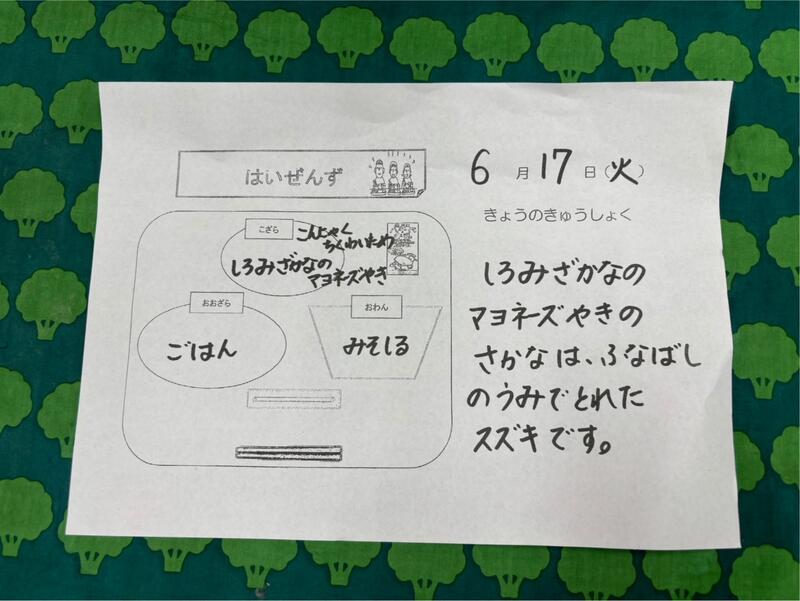 はいぜんず
こざら
こんにゃく
ちくわいため
しろみざかなの
マヨネーズやき
おおざら
ごはん
おわん
みそしる
6月17日(火)
きょうのきゅうしょく
しろみざかなの
マヨネーズやきの
さかなは、ふなばし
のうみでとれた
スズキです。